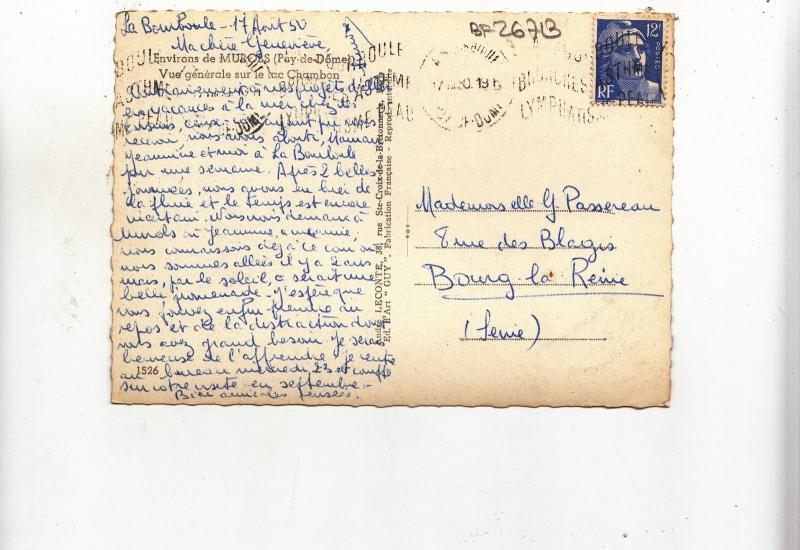 BF 267B
La Bourboule - 17 Août 50
Ma chère Geneviève,
Environs de MUROLS (Puy-de-Dôme)
Vue générale sur le lac Chambon
Contrairement à nos projets d'aller
à la mer chez des
cousins, ceux
recevoir, nous avons abouti, maman
Jeannine et moi à La Bourboule
pour une semaine. Après 2 belles
journées, nous avons eu hier de
la pluie et le temps est encore
incertain. Nous irons demain à
Murols où Jeannine
nous connaissons déjà ce coin où
nous sommes allées il y a 2 ans
mais, par le soleil, ce serait une
belle promenade. J'espère que
vous pouvez enfin prendre du
repos et de la distraction dont
vous avez grand besoin. Je serai
heureuse de l'apprendre je rentre
au bureau mercredi 23 et compte
sur votre visite en septembre.-
Bien amicales pensées.
1526
André LECONTE, 38, rue Ste-Croix-de-la-Bretonnerie
Ed. d'Art "GUY". Fabrication Française. Reprod.
12F
POSTES
RF
BRONCHES
ASTHME
LYMPHATISME
Mademoiselle G. Passereau
8 rue des Blagis
Bourg la Reine
(Seine)